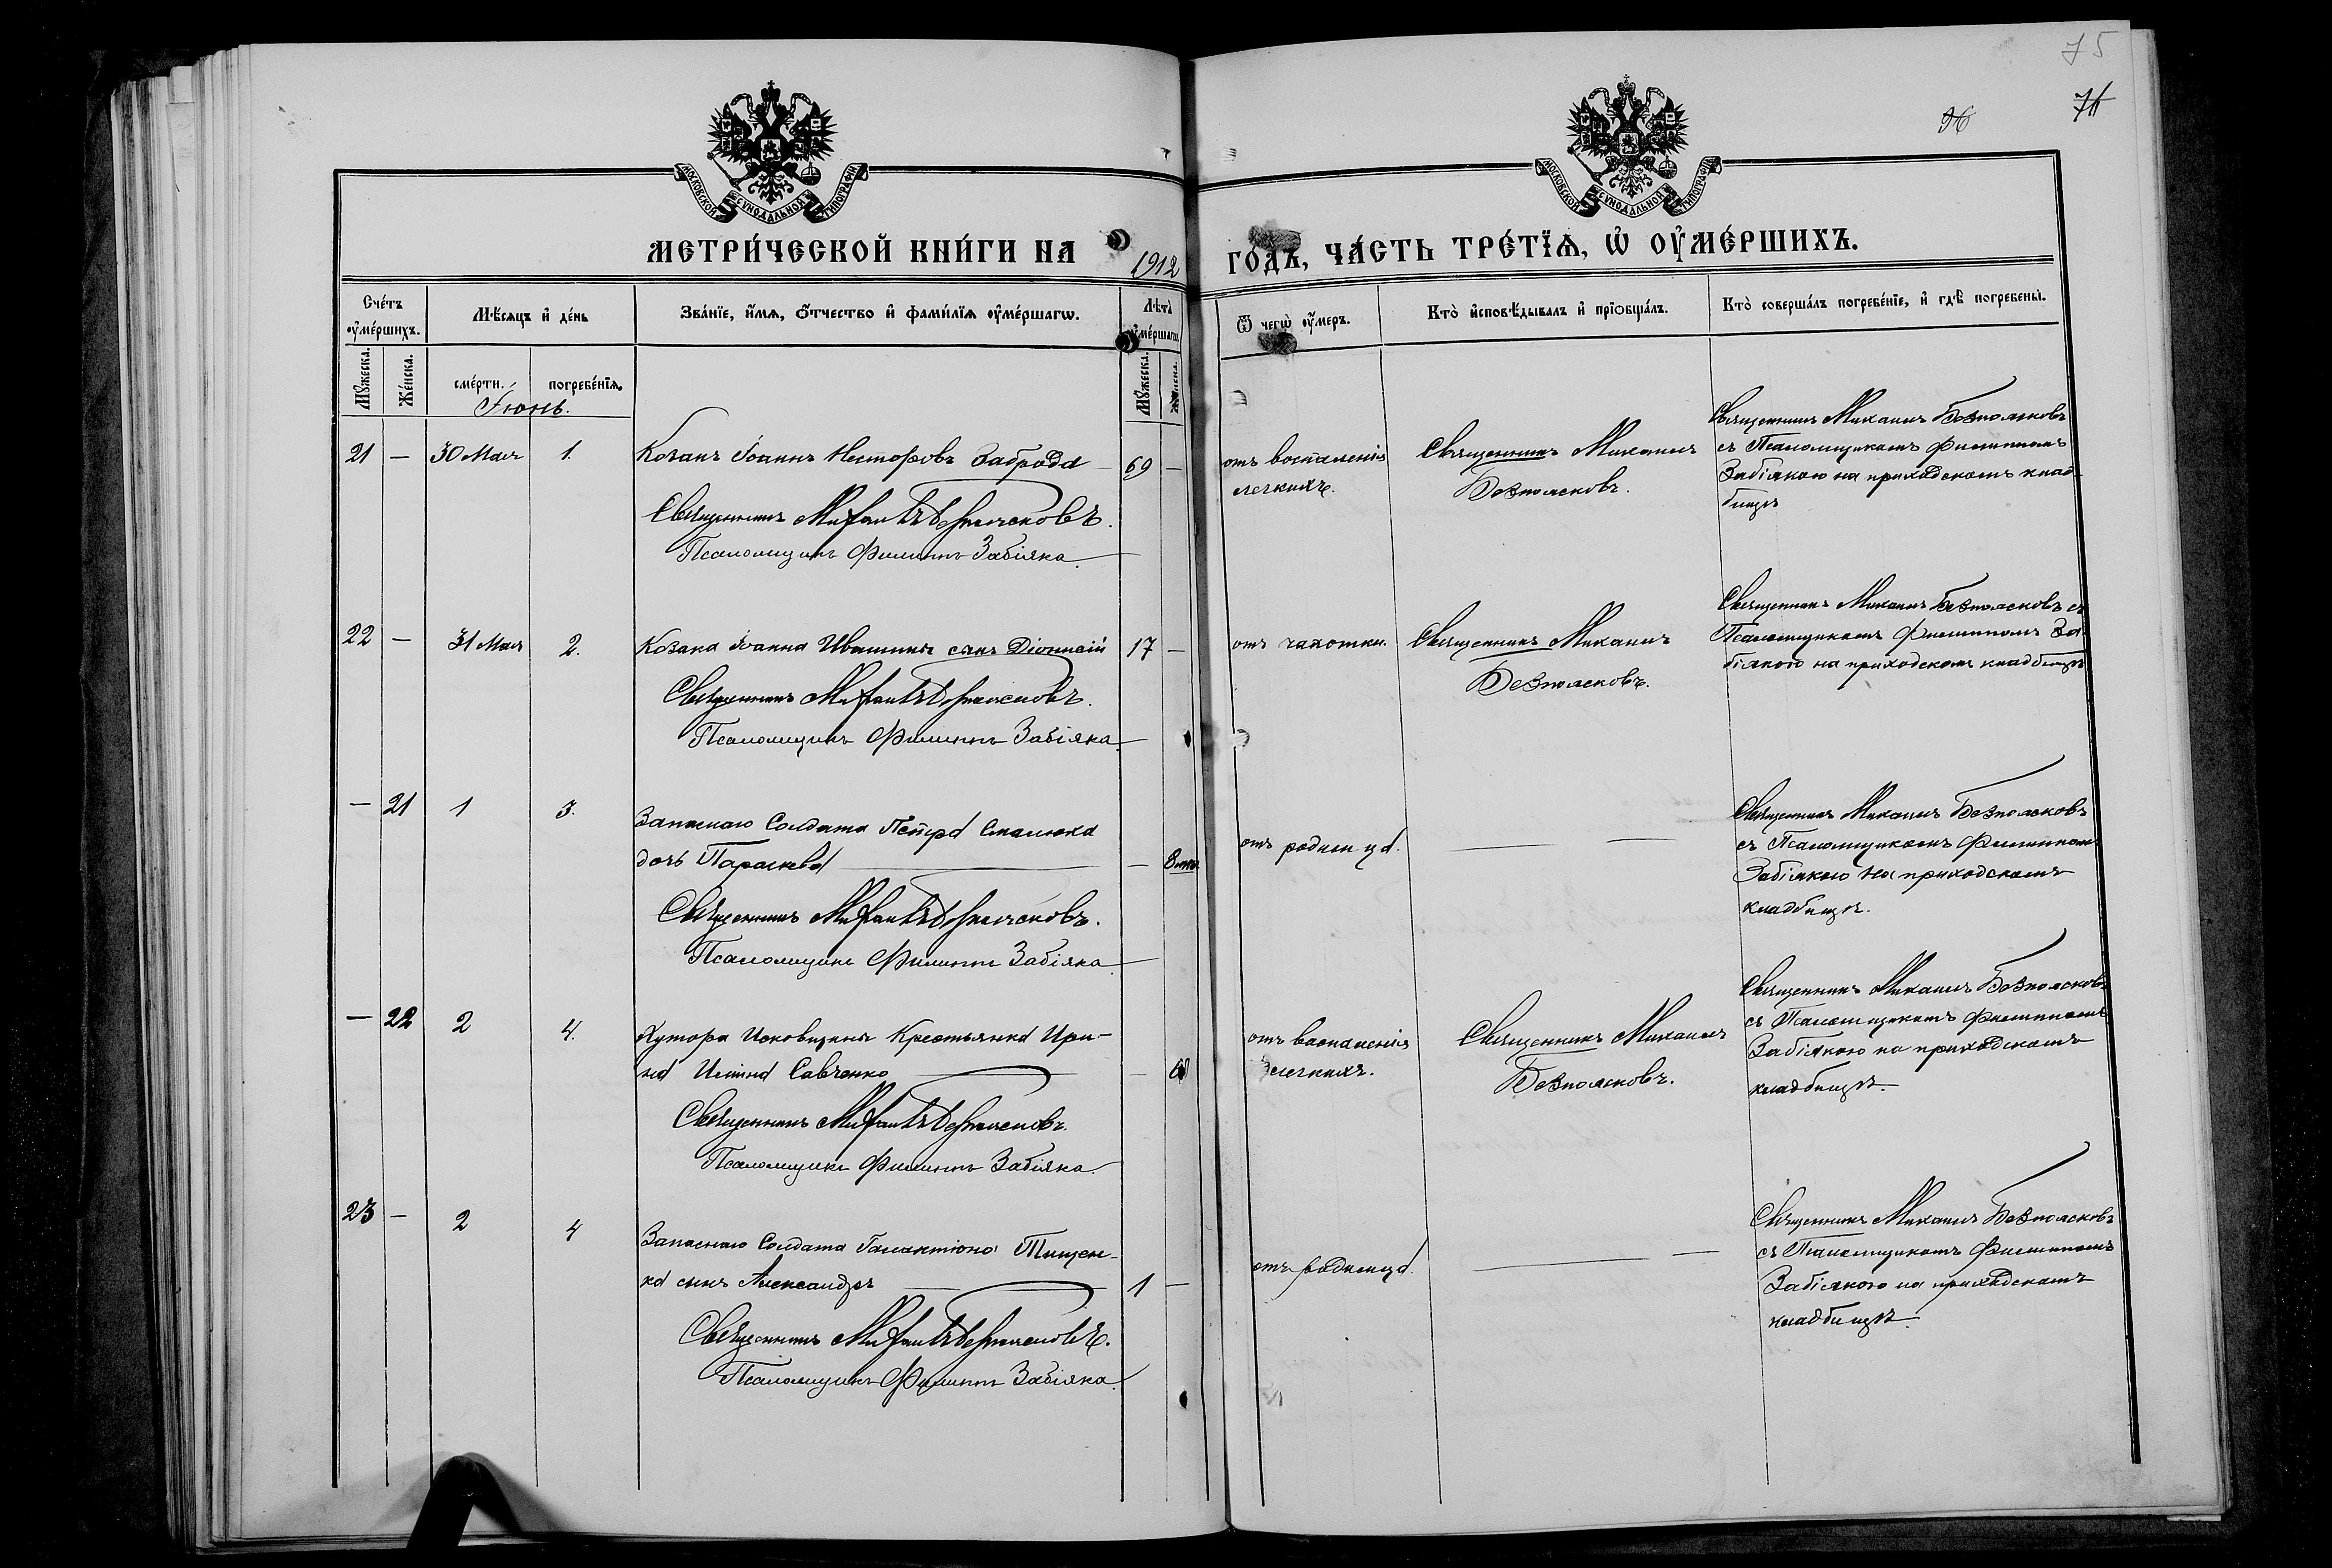 75
76
МОСКОВСКОЙ СѴНОДАЛЬНОЙ ТИПОГРАФІИ
МОСКОВСКОЙ СѴНОДАЛЬНОЙ ТИПОГРАФІИ
МЕТРИ́ЧЕСКОЙ КНИ́ГИ НА 1912 ГО́ДЪ, ЧА́СТЬ ТРЕ́ТЇѦ, Ѡ҆ ОУ҆МЕ́РШИХЪ.
Сче́тъ оу҆ме́ршихъ.
Мꙋ́жеска.
Же́нска.
Мѣ́сяцъ и҆ де́нь
сме́рти.
погребе́нїѧ.
Зва́нїе, и҆́мѧ, ѻ҆́тчество и҆ фами́лїѧ оу҆ме́ршагѡ.
Лѣта̀ оу҆ме́ршагѡ.
Мꙋ́жеска.
Же́нска.
Ѿ чегѡ̀ оу҆́меръ.
Кто̀ и҆сповѣ́дывалъ и҆ прїѻбща́лъ.
Кто̀ соверша́лъ погребе́нїе, и҆ гдѣ̀ погребены̀.
Іюнь.
21 — 30 Мая 1. Козакъ Іоаннъ Несторовъ Заброда 69 —
Священникъ Михаилъ Безпоясковъ.
Псаломщикъ Филиппъ Забіяка.
отъ воспаленія
легкихъ.
Священникъ Михаилъ
Безпоясковъ.
Священникъ Михаилъ Безпоясковъ
съ Псаломщикомъ Филиппомъ
Забіякою на приходскомъ клад-
бищѣ
22 — 31 Мая 2. Козака Іоанна Ивашины сынъ Діонисій 17 —
Священникъ Михаилъ Безпоясковъ.
Псаломщикъ Филиппъ Забіяка.
отъ чахотки.
Священникъ Михаилъ
Безпоясковъ.
Священникъ Михаилъ Безпоясковъ съ
Псаломщикомъ Филиппомъ За-
біякою на приходскомъ кладбищѣ
— 21 1 3. Запаснаго Солдата Петра Смалюка
дочь Параскева — 8 мѣс.
Священникъ Михаилъ Безпоясковъ.
Псаломщикъ Филиппъ Забіяка
отъ родимца.
Священникъ Михаилъ Безпоясковъ
съ Псаломщикомъ Филиппомъ
Забіякою на приходскомъ
кладбищѣ.
— 22 2 4. Хутора Исковщины Крестьянка Ири-
на Савченко —
Священникъ Михаилъ Безпоясковъ.
Псаломщикъ Филиппъ Забіяка.
отъ воспаленія
легкихъ.
Священникъ Михаилъ
Безпоясковъ.
Священникъ Михаилъ Безпоясковъ
съ Псаломщикомъ Филиппомъ
Забіякою на приходскомъ
кладбищѣ.
23 — 2 4 Запаснаго Солдата Галактіона Тищен-
ка сынъ Александръ 1 —
Священникъ Михаилъ Безпоясковъ.
Псаломщикъ Филиппъ Забіяка.
отъ родимца.
Священникъ Михаилъ Безпоясковъ
съ Псаломщикомъ Филиппомъ
Забіякою на приходскомъ
кладбищѣ.